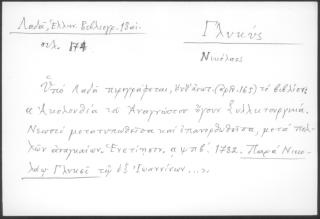 Λαδᾶ, Ἑλλην. Βιβλιογρ. 18 αἰ.
σελ. 174
Γλυκύς
Νικόλαος
Ὑπὸ Λαδᾶ περιγράφεται, (ἀρ. 165) τὸ βιβλίον
« Ἀκολουθία τοῦ Ἀναγνώστου ἤγουν Συλλειτουργικά.
Νεωστὶ μετατυπωθεῖσα καὶ ἐπανορθωθεῖσα, μετὰ πολ-
λῶν ἀναγκαίων. Ἐνετίῃσιν. αψπβ΄. 1782. Παρὰ Νικο-
λάῳ Γλυκεῖ τῷ ἐξ Ἰωαννίνων...».